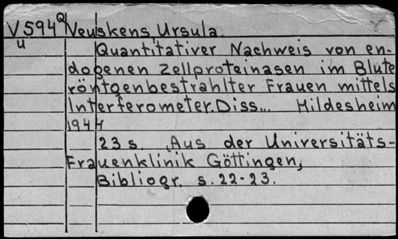 V594Q Neuskens, Ursula.
u
Quantitativer Nachweis von en-
dogenen Zellproteinasen im Blute
röntgenbestrahlter Frauen mittels
Interferometer. Diss... Hildesheim
1944
23 s. Aus der Universitäts-
Frauenklinik Göttingen,
Bibliogr. s. 22-23.